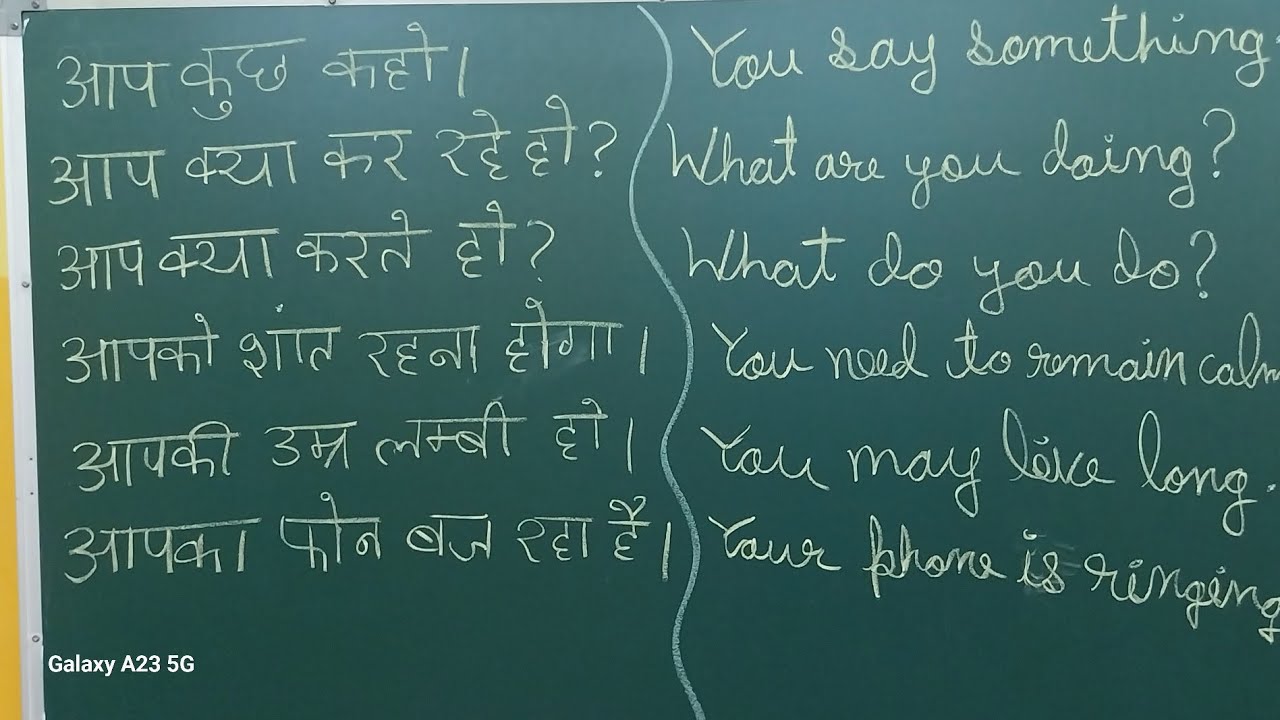 आप कुछ कहो। You say something.
आप क्या कर रहे हो? What are you doing?
आप क्या करते हो? What do you do?
आपको शांत रहना होगा। You need to remain calm
आपकी उम्र लम्बी हो। You may live long.
आपका फोन बज रहा है। Your phone is ringing
Galaxy A23 5G